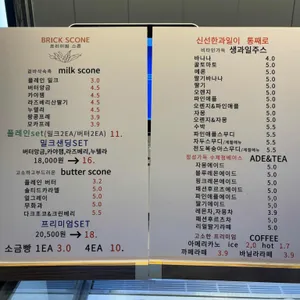 BRICK SCONE
브릭하우스 스콘
milk scone
플레인 밀크 3.2
버터앙금 4.5
카야잼 4.5
라즈베리산딸기 4.5
누텔라 4.5
쌀콩포트 3.9
모카프레 3.9
플레인set(밀크2EA/버터2EA) 11.
밀크샌딩SET
버터앙금,카야잼,라즈베리,누텔라
18,000원 → 16.
butter scone
플레인 버터 3.2
솔티드카라멜 5.0
얼그레이 5.0
무화과 5.0
다크초코&크린베리 5.5
프리미엄SET
20,500원 → 18.
소금빵 1EA 3.0 4EA 10.
신선한과일이 통째로
생과일주스
바나나 4.0
꿀토마토 5.0
메론 5.0
딸기바나나 5.0
딸기 5.0
오렌지 5.0
파인애플 5.0
오렌지&파인애플 5.0
자몽 5.0
오렌지&자몽 5.0
수박 5.5
파인애플스무디 5.5
자두스무디 5.5
5.5
ADE&TEA
자몽에이드 5.5
블루레몬에이드 5.5
핑크레몬에이드 5.5
패션후르츠에이드 5.5
파인애플에이드 5.5
딸기에이드 5.5
레몬차,자몽차 3.9
패션후르츠차 3.9
리얼딸기라떼 5.5
COFFEE
아메리카노 ice 2.0 hot 1.7
까페라떼 3.9 바닐라라떼 3.9